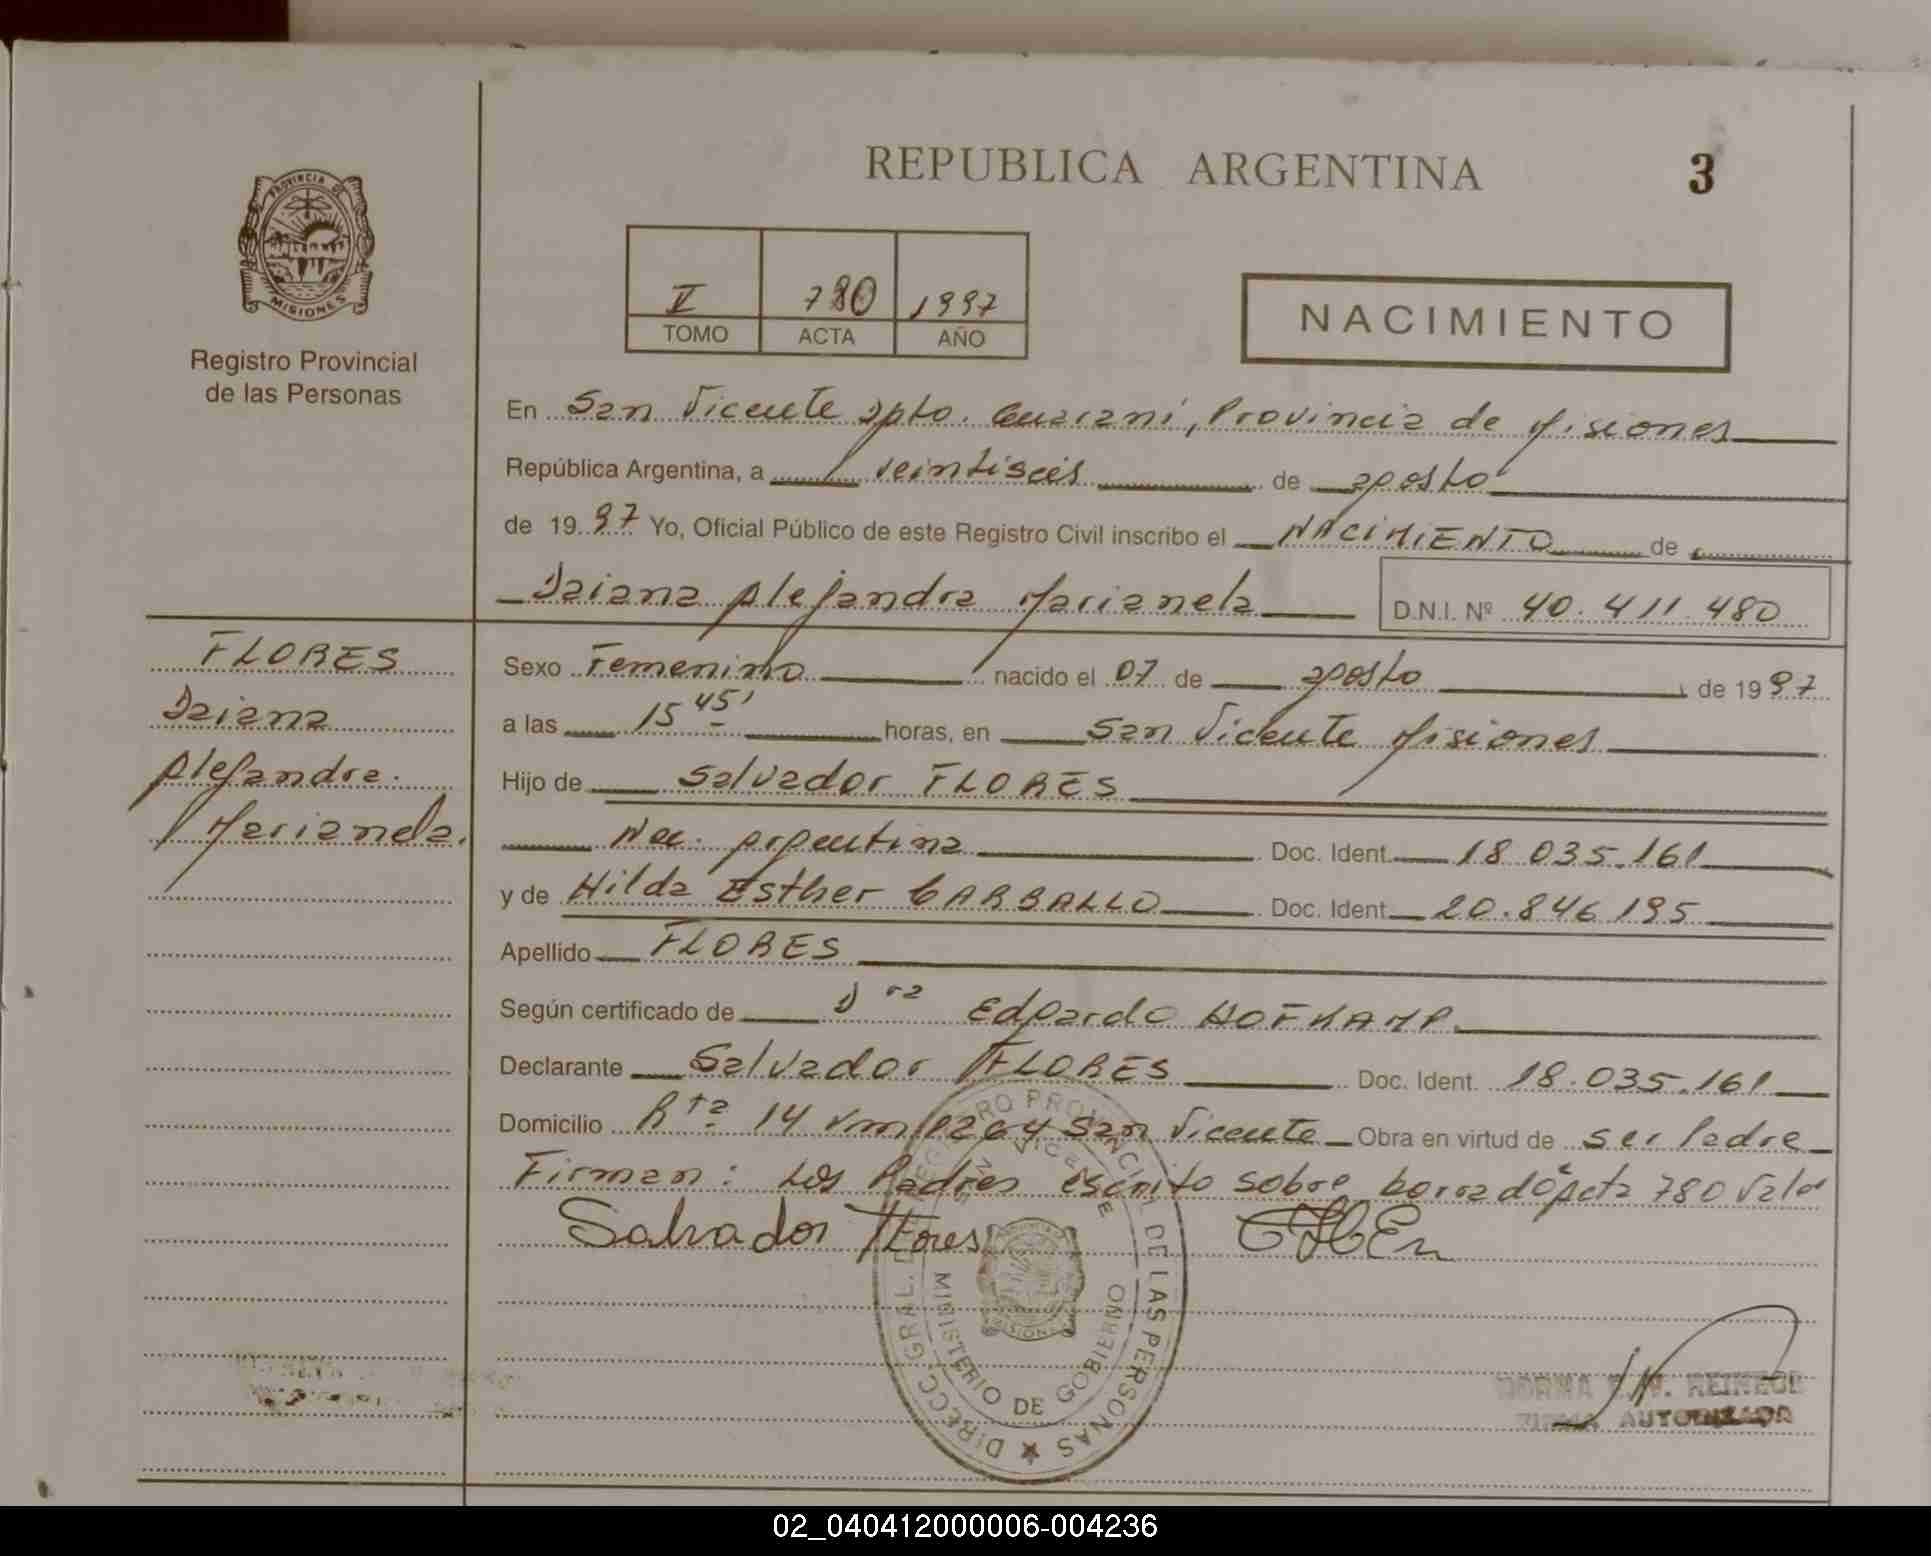 REPUBLICA ARGENTINA
3
PROVINCIA DE
MISIONES
Registro Provincial
de las Personas
V 780 1997
TOMO ACTA AÑO
NACIMIENTO
En San Vicente Dpto. Guaraní, Provincia de Misiones
República Argentina, a veintiseis de agosto
de 1997 Yo, Oficial Público de este Registro Civil inscribo el NACIMIENTO de
Daiana Alejandra Marianela D.N.I. Nº 40.411.480
FLORES
Daiana
Alejandra.
Marianela.
Sexo Femenino nacido el 07 de agosto de 1997
a las 15 45' horas, en San Vicente Misiones
Hijo de Salvador FLORES
Nac. Argentina Doc. Ident. 18.035.161
y de Hilda Esther CARBALLO Doc. Ident. 20.846.195
Apellido FLORES
Según certificado de Dra Edgardo HOFKAMP.
Declarante Salvador FLORES Doc. Ident. 18.035.161
Domicilio Rta 14 km 1264 San Vicente Obra en virtud de ser Padre
Firman: Los Padres escrito sobre borrado Acta 780 Vale
Salvador Flores
DIRECC. GRAL. DEL REGISTRO PROVINCIAL DE LAS PERSONAS
SAN VICENTE
MINISTERIO DE GOBIERNO
MISIONES
NORMA
FIRMA AUTORIZADA
02_040412000006-004236